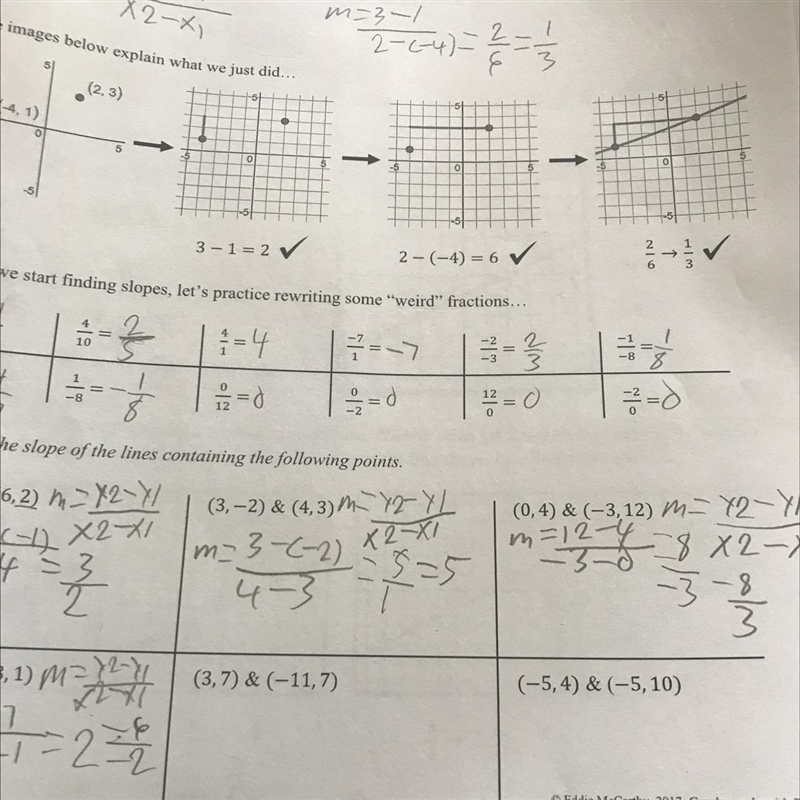 x2-x1
m=3-1
2-(-4) = 2/6 = 1/3
images below explain what we just did…
5 (2, 3) -4, 1) 0 5 -5
5 -5 0 5 -5
5 -5 0 5 -5
5 -5 0 5 -5
3 − 1 = 2 ✓ 2 − (−4) = 6 ✓ 2/6 → 1/3 ✓
we start finding slopes, let's practice rewriting some "weird" fractions…
4/10 = 2/5 4/1 = 4 −7/1 = -7 −2/−3 = 2/3 −1/−8 = 1/8
1/−8 = -1/8 0/12 = 0 0/−2 = 0 12/0 = 0 −2/0 = 0
the slope of the lines containing the following points.
6, 2) m = Y2-Y1 (3, −2) & (4, 3) m = Y2-Y1 (0, 4) & (−3, 12) m = Y2-Y1
(-1) X2-X1 m = 3-(-2) X2-X1 m = 12-4 = 8 X2-X
4 = 3/2 4-3 = 5/1 = 5 -3-0 -3 -8/3
, 1) m = Y2-Y1 (3, 7) & (−11, 7) (−5, 4) & (−5, 10)
X2-X1
7
-1 = 2 = -6
-2
© Eddie McCarthy, 2017